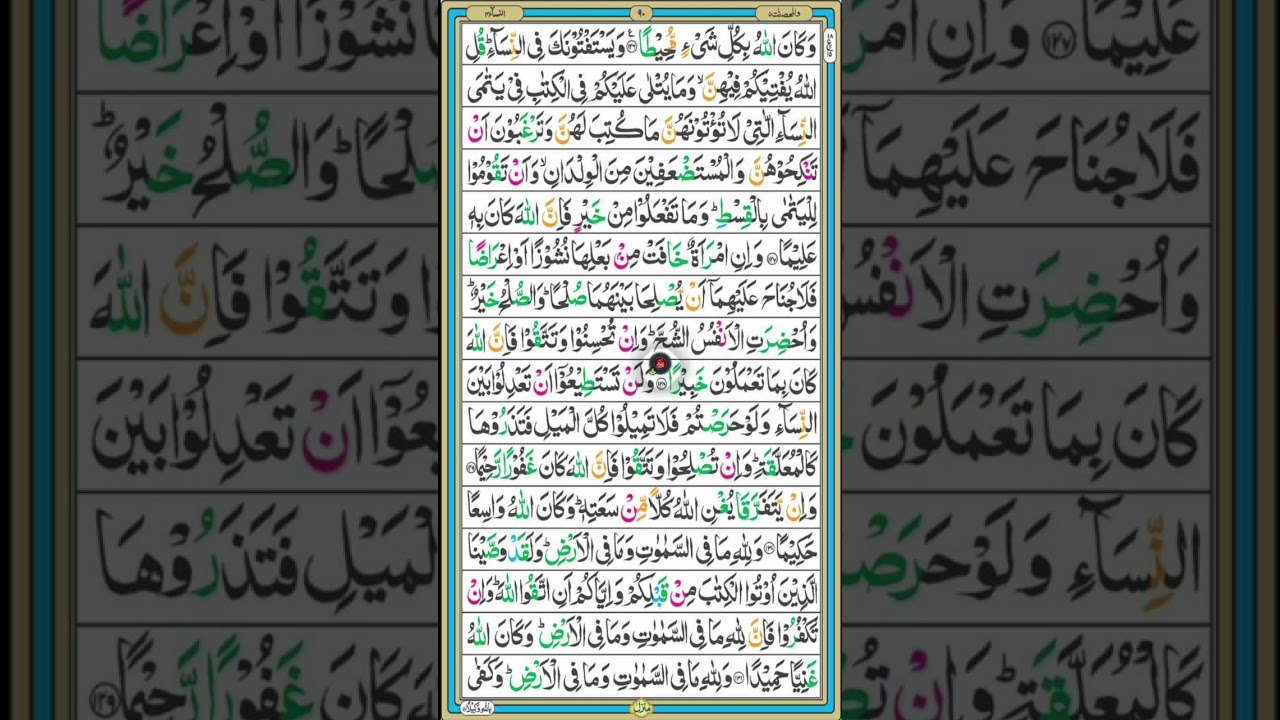 والمحصنت ۵
۹۰
النسآء ۴
وَكَانَ اللّٰهُ بِكُلِّ شَیْءٍ مُّحِیْطًا ﴿۱۲۶﴾ وَیَسْتَفْتُوْنَكَ فِی النِّسَآءِ ؕ قُلِ
اللّٰهُ یُفْتِیْكُمْ فِیْهِنَّ ۙ وَمَا یُتْلٰی عَلَیْكُمْ فِی الْكِتٰبِ فِیْ یَتٰمَی
النِّسَآءِ الّٰتِیْ لَا تُؤْتُوْنَهُنَّ مَا كُتِبَ لَهُنَّ وَتَرْغَبُوْنَ اَنْ
تَنْكِحُوْهُنَّ وَالْمُسْتَضْعَفِیْنَ مِنَ الْوِلْدَانِ ۙ وَاَنْ تَقُوْمُوْا
لِلْیَتٰمٰی بِالْقِسْطِ ؕ وَمَا تَفْعَلُوْا مِنْ خَیْرٍ فَاِنَّ اللّٰهَ كَانَ بِهٖ
عَلِیْمًا ﴿۱۲۷﴾ وَاِنِ امْرَاَةٌ خَافَتْ مِنْۢ بَعْلِهَا نُشُوْزًا اَوْ اِعْرَاضًا
فَلَا جُنَاحَ عَلَیْهِمَاۤ اَنْ یُّصْلِحَا بَیْنَهُمَا صُلْحًا ؕ وَالصُّلْحُ خَیْرٌ ؕ
وَاُحْضِرَتِ الْاَنْفُسُ الشُّحَّ ؕ وَاِنْ تُحْسِنُوْا وَتَتَّقُوْا فَاِنَّ اللّٰهَ
كَانَ بِمَا تَعْمَلُوْنَ خَبِیْرًا ﴿۱۲۸﴾ وَلَنْ تَسْتَطِیْعُوْۤا اَنْ تَعْدِلُوْا بَیْنَ
النِّسَآءِ وَلَوْ حَرَصْتُمْ فَلَا تَمِیْلُوْا كُلَّ الْمَیْلِ فَتَذَرُوْهَا
كَالْمُعَلَّقَةِ ؕ وَاِنْ تُصْلِحُوْا وَتَتَّقُوْا فَاِنَّ اللّٰهَ كَانَ غَفُوْرًا رَّحِیْمًا ﴿۱۲۹﴾
وَاِنْ یَّتَفَرَّقَا یُغْنِ اللّٰهُ كُلًّا مِّنْ سَعَتِهٖ ؕ وَكَانَ اللّٰهُ وَاسِعًا
حَكِیْمًا ﴿۱۳۰﴾ وَلِلّٰهِ مَا فِی السَّمٰوٰتِ وَمَا فِی الْاَرْضِ ؕ وَلَقَدْ وَصَّیْنَا
الَّذِیْنَ اُوْتُوا الْكِتٰبَ مِنْ قَبْلِكُمْ وَاِیَّاكُمْ اَنِ اتَّقُوا اللّٰهَ ؕ وَاِنْ
تَكْفُرُوْا فَاِنَّ لِلّٰهِ مَا فِی السَّمٰوٰتِ وَمَا فِی الْاَرْضِ ؕ وَكَانَ اللّٰهُ
غَنِیًّا حَمِیْدًا ﴿۱۳۱﴾ وَلِلّٰهِ مَا فِی السَّمٰوٰتِ وَمَا فِی الْاَرْضِ ؕ وَكَفٰی
منزل